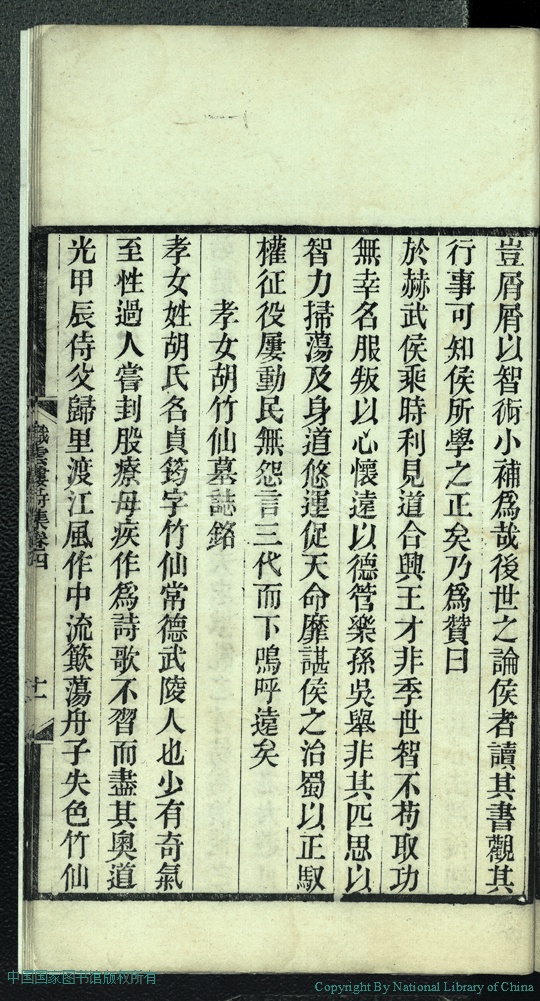 豈屑屑以智術小補爲哉後世之論侯者讀其書觀其
行事可知侯所學之正矣乃爲贊曰
於赫武侯乘時利見道合興王才非季世智不茍取功
無幸名服叛以心懷遠以德管樂孫吳舉非其匹思以
智力掃蕩及身道悠運促天命靡諶侯之治蜀以正馭
權征役屢動民無怨言三代而下嗚呼遠矣
孝女胡竹仙墓誌銘
孝女姓胡氏名貞筠字竹仙常德武陵人也少有奇氣
至性過人嘗刲股療母疾作爲詩歌不習而盡其奧道
光甲辰侍父歸里渡江風作中流簸蕩舟子失色竹仙
集卷四
十一
中国国家图书馆版权所有
Copyright By National Library of China